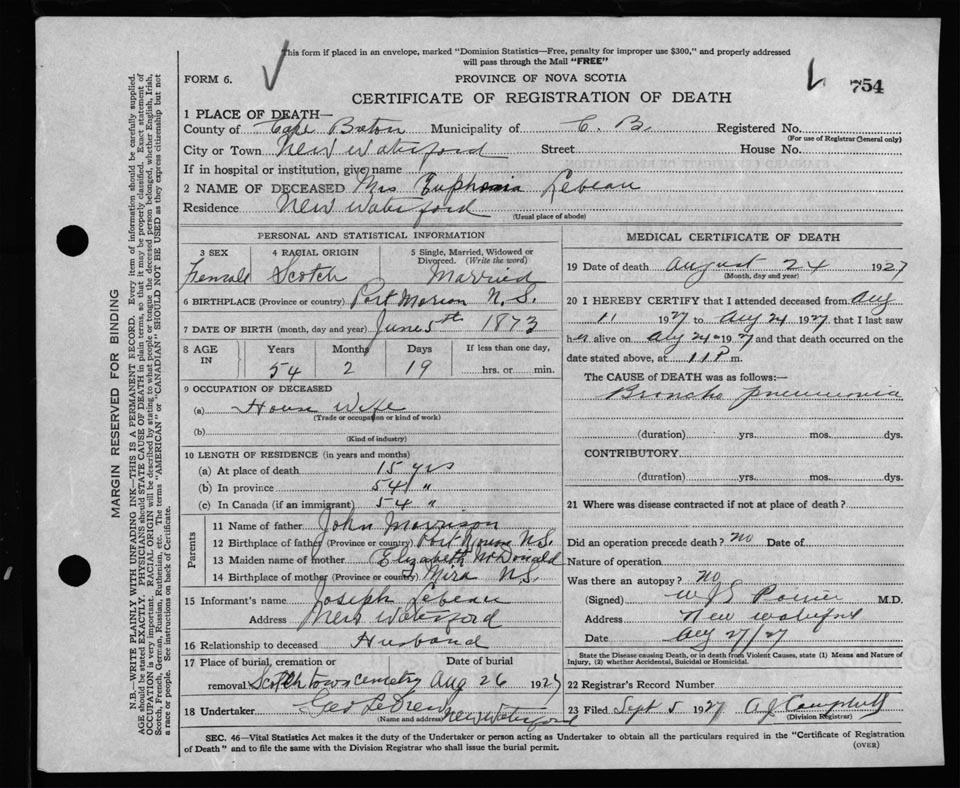 This form if placed in an envelope, marked "Dominion Statistics—Free, penalty for improper use $300," and properly addressed
will pass through the Mail "FREE"
FORM 6.
PROVINCE OF NOVA SCOTIA
754
CERTIFICATE OF REGISTRATION OF DEATH
1 PLACE OF DEATH—
County of Cape Breton Municipality of C. B. Registered No.
(For use of Registrar General only)
City or Town New Waterford Street House No.
If in hospital or institution, give name
2 NAME OF DECEASED Mrs Euphemia Lebeau
Residence New Waterford
(Usual place of abode)
PERSONAL AND STATISTICAL INFORMATION
3 SEX 4 RACIAL ORIGIN 5 Single, Married, Widowed or
Divorced. (Write the word)
Female Scotch Married
6 BIRTHPLACE (Province or country) Port Morien N.S.
7 DATE OF BIRTH (month, day and year) June 5th 1873
8 AGE IN Years Months Days If less than one day,
54 2 19 hrs. or min.
9 OCCUPATION OF DECEASED
(a) House Wife
(Trade or occupation or kind of work)
(b)
(Kind of industry)
10 LENGTH OF RESIDENCE (in years and months)
(a) At place of death 15 yrs
(b) In province 54 "
(c) In Canada (if an immigrant) 54 "
Parents
11 Name of father John Morrison
12 Birthplace of father (Province or country) Port N.S.
13 Maiden name of mother Elizabeth McDonald
14 Birthplace of mother (Province or country) Mira N.S.
15 Informant's name Joseph Lebeau
Address New Waterford
16 Relationship to deceased Husband
17 Place of burial, cremation or Date of burial
removal Scotchtown cemetry Aug 26 1927
18 Undertaker Geo LeDrew New Waterford
(Name and address)
MEDICAL CERTIFICATE OF DEATH
19 Date of death August 24 1927
(Month, day and year)
20 I HEREBY CERTIFY that I attended deceased from Aug
11 1927 to Aug 24 1927, that I last saw
her alive on Aug 24 1927 and that death occurred on the
date stated above, at 11 P m.
The CAUSE OF DEATH was as follows:—
Broncho pneumonia
(duration) yrs. mos. dys.
CONTRIBUTORY
(duration) yrs. mos. dys.
21 Where was disease contracted if not at place of death?
Did an operation precede death? no Date of
Nature of operation
Was there an autopsy? no
(Signed) M.D.
Address New Waterford
Date Aug 27/27
State the Disease causing Death, or in death from Violent Causes, state (1) Means and Nature of
Injury, (2) whether Accidental, Suicidal or Homicidal.
22 Registrar's Record Number
23 Filed Sept 5 1927 A J Campbell
(Division Registrar)
SEC. 46—Vital Statistics Act makes it the duty of the Undertaker or person acting as Undertaker to obtain all the particulars required in the "Certificate of Registration
of Death" and to file the same with the Division Registrar who shall issue the burial permit.
(OVER)
MARGIN RESERVED FOR BINDING
N.B.—WRITE PLAINLY WITH UNFADING INK—THIS IS A PERMANENT RECORD. Every item of information should be carefully supplied.
AGE should be stated EXACTLY. PHYSICIANS should STATE CAUSE OF DEATH in plain terms, so that it may be properly classified. Exact statement of
OCCUPATION is very important. RACIAL ORIGIN will be described by stating to what people or tongue the deceased person belonged, whether English, Irish,
Scotch, French, German, Russian, Ruthenian, etc. The terms "AMERICAN" or "CANADIAN" SHOULD NOT BE USED as they express citizenship but not
a race or people. See instructions on back of Certificate.